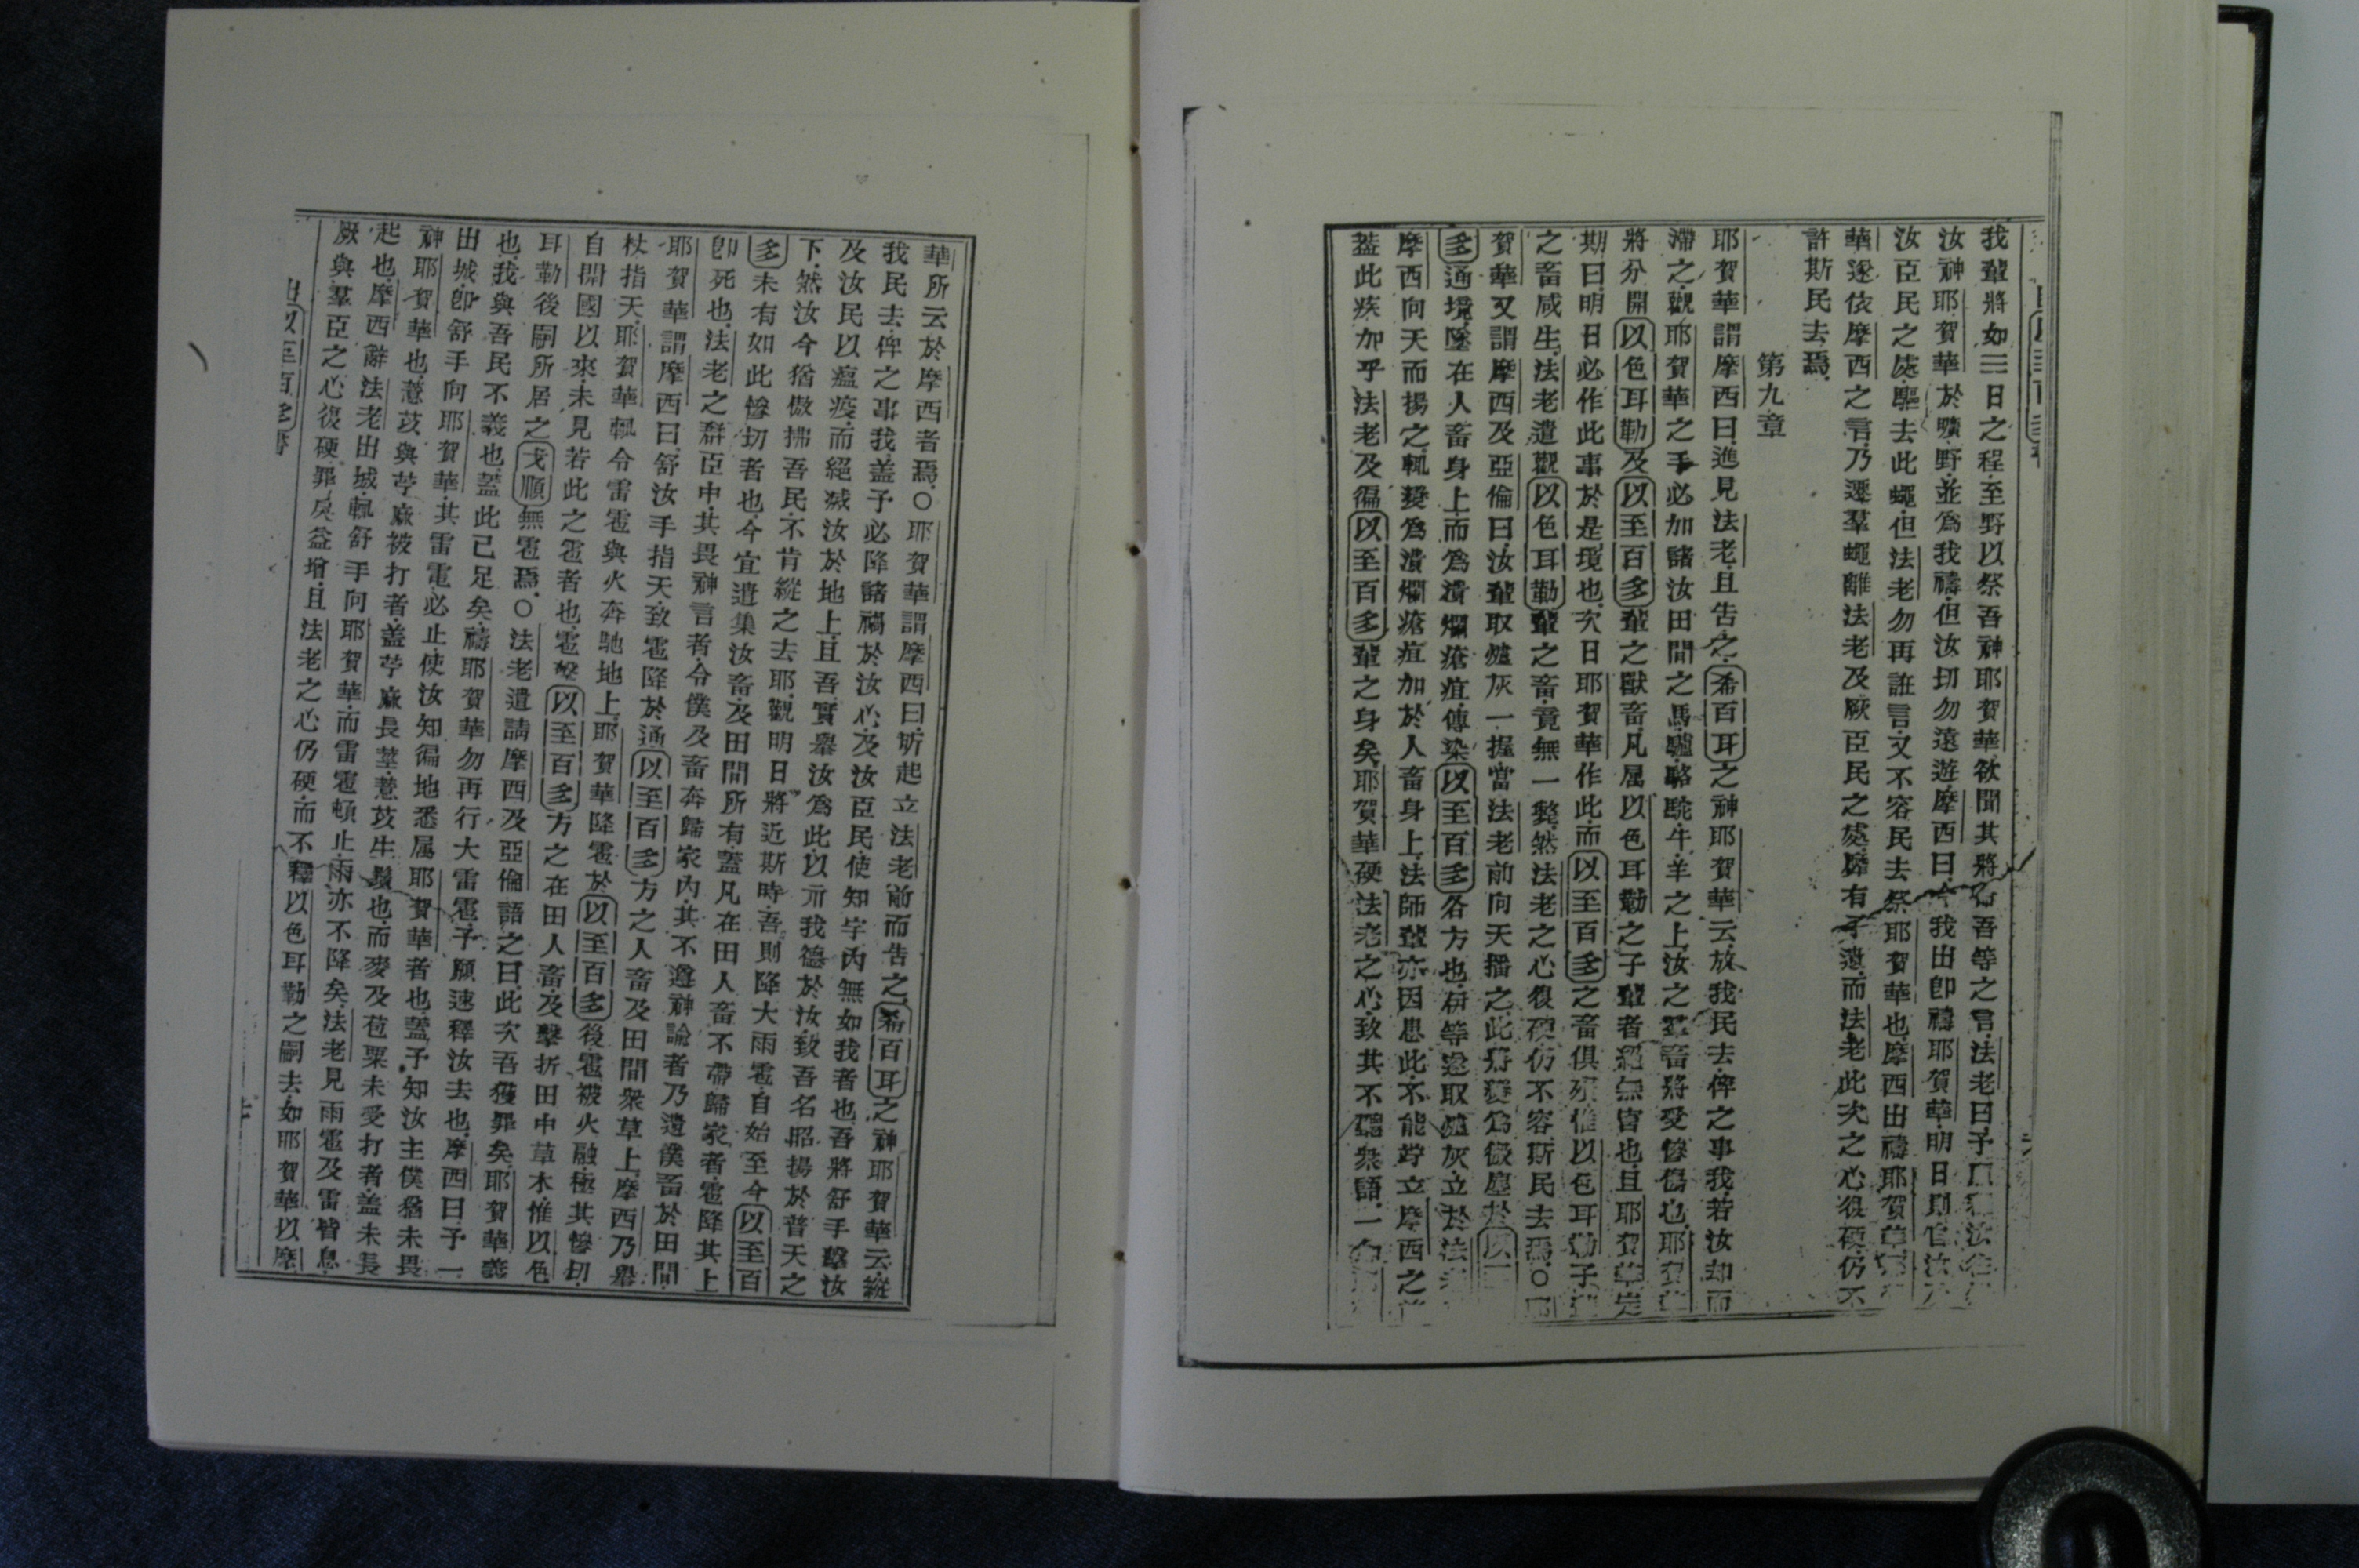 我輩將如三日之程至野以祭吾神耶賀華欲聞其將右吾等之言法老曰予
汝神耶賀華於曠野並為我禱但汝切勿遠遊摩西曰今我出即禱耶賀華明日
汝臣民之處驅去此蠅但法老勿再誑言又不容民去祭耶賀華也摩西出禱耶賀華
華遂依摩西之言乃遷羣蠅離法老及厥臣民之處靡有孑遺而法老此次之心復硬仍不
許斯民去焉
第九章
耶賀華謂摩西曰進見法老且告之希百耳之神耶賀華云放我民去俾之事我若汝却而
滯之觀耶賀華之手必加諸汝田間之馬驢駱駝牛羊之上汝之羣畜將受慘傷也耶賀華
將分開以色耳勒及以至百多輩之獸畜凡属以色耳勒之子輩者絕無害也且耶賀華定
期曰明日必作此事於是境也次日耶賀華作此而以至百多之畜俱死惟以色耳勒子輩
之畜咸生法老遣觀以色耳勒輩之畜竟無一斃然法老之心復硬仍不容斯民去焉○耶
賀華又謂摩西及亞倫曰汝輩取爐灰一握當法老前向天播之此將變為微塵於以至
多通境墜在人畜身上而為潰爛瘡疽傳染以至百多各方也伊等遂取爐灰立於法老
摩西向天而揚之輒變為潰爛瘡疽加於人畜身上法師輩亦因患此不能竚立摩西之前
蓋此疾加乎法老及徧以至百多輩之身矣耶賀華硬法老之心致其不聽衆語一如
華所云於摩西者焉○耶賀華謂摩西曰夙起立法老前而告之希百耳之神耶賀華云縱
我民去俾之事我蓋予必降諸禍於汝心及汝臣民使知宇內無如我者也吾將舒手擊汝
及汝民以瘟疫而絕滅汝於地上且吾實舉汝為此以示我德於汝致吾名昭揚於普天之
下然汝今猶傲拂吾民不肯縱之去耶觀明日將近斯時吾則降大雨雹自始至今以至百
多未有如此慘切者也今宜遣集汝畜及田間所有蓋凡在田人畜不帶歸家者雹降其上
即死也法老之羣臣中其畏神言者令僕及畜奔歸家內其不遵神諭者乃遺僕畜於田間
耶賀華謂摩西曰舒汝手指天致雹降於通以至百多方之人畜及田間衆草上摩西乃舉
杖指天耶賀華輒令雷雹與火奔馳地上耶賀華降雹於以至百多後雹被火融極其慘切
自開國以來未見若此之雹者也雹擊以至百多方之在田人畜及擊折田中草木惟以色
耳勒後嗣所居之戈順無雹焉○法老遣請摩西及亞倫語之曰此次吾獲罪矣耶賀華義
也我與吾民不義也蓋此已足矣禱耶賀華勿再行大雷雹予願速釋汝去也摩西曰予一
出城即舒手向耶賀華其雷電必止使汝知徧地悉属耶賀華者也蓋予知汝主僕猶未畏
神耶賀華也薏苡與苧麻被打者蓋苧麻長莖薏苡生鬚也而麥及苞粟未受打者蓋未長
起也摩西辭法老出城輒舒手向耶賀華而雷雹頓止雨亦不降矣法老見雨雹及雷皆息
厥與羣臣之心復硬罪戾益增且法老之心仍硬而不釋以色耳勒之嗣去如耶賀華以摩